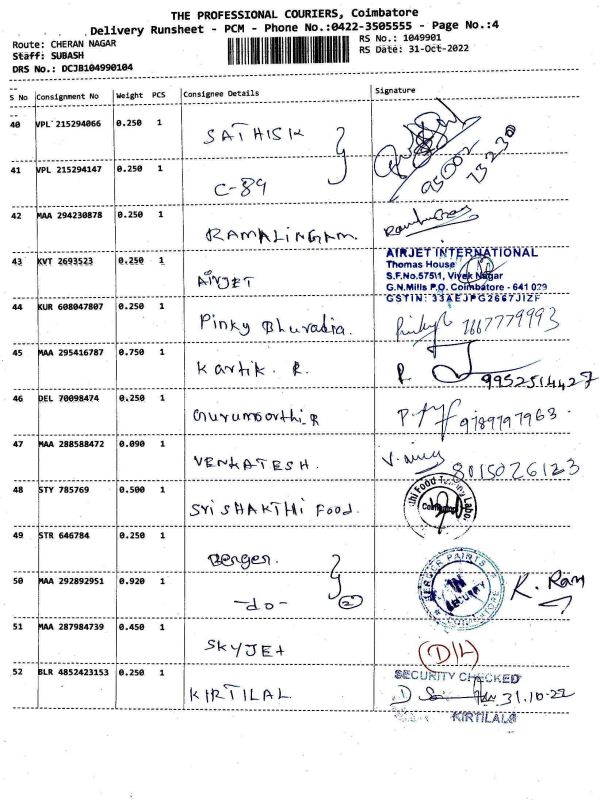 THE PROFESSIONAL COURIERS, Coimbatore
Delivery Runsheet - PCM - Phone No.:0422-3505555 - Page No.:4
Route: CHERAN NAGAR
RS No.: 1049901
Staff: SUBASH
RS Date: 31-Oct-2022
DRS No.: DCJB104990104
S No Consignment No Weight PCS Consignee Details Signature
40 VPL 215294066 0.250 1 SATHISH
95002 73230
41 VPL 215294147 0.250 1 C-89
42 MAA 294230878 0.250 1 RAMALINGAM.
43 KVT 2693523 0.250 1 AIRJET
AIRJET INTERNATIONAL
Thomas House
S.F.No.575\1, Vivek Nagar
G.N.Mills P.O. Coimbatore - 641 029
GSTIN: 33AEJPG2667J1ZF
44 KUR 608047807 0.250 1 Pinky Bhuradia. 7667779993
45 MAA 295416787 0.750 1 Kartik. R. R. 9952514427
46 DEL 70098474 0.250 1 Gurumoorthi.R 9789797963.
47 MAA 288588472 0.090 1 VENKATESH. 8015026123
48 STY 785769 0.500 1 Sri SHAKTHi Food.
49 STR 646784 0.250 1 Berger.
BERGER PAINTS
SECURITY
COIMBATORE
K. Ram
50 MAA 292892951 0.920 1 -do- 2
51 MAA 287984739 0.450 1 SKYJET D/L
52 BLR 4852423153 0.250 1 KIRTILAL
SECURITY CHECKED
31.10-22
KIRTILALS